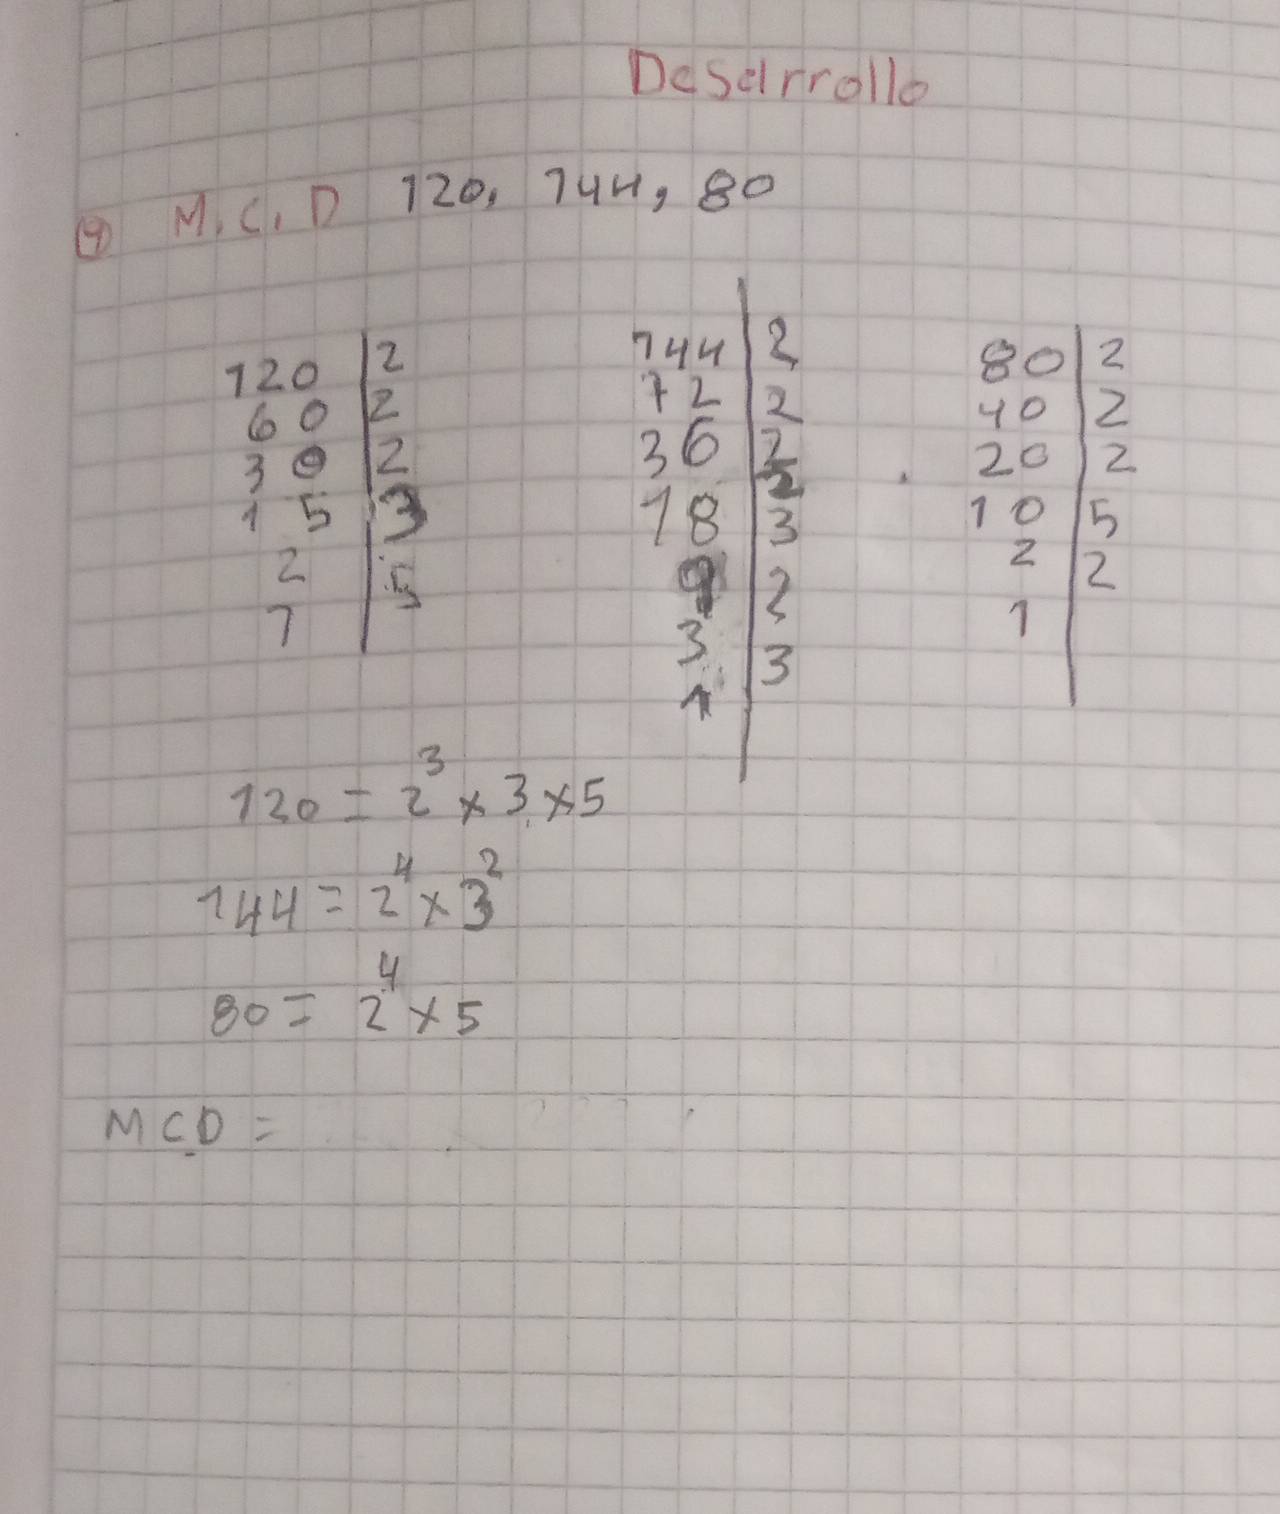 Desarrollo
④ M.C.D 120, 144, 80
120 | 2
60 | 2
30 | 2
15 | 3
2 | 5
1
144 | 2
72 | 2
36 | 2
18 | 3
9 | 2
3 | 3
1
80 | 2
40 | 2
20 | 2
10 | 5
2 | 2
1
120 = 2³ × 3 × 5
144 = 2⁴ × 3²
80 = 2⁴ × 5
MCD =